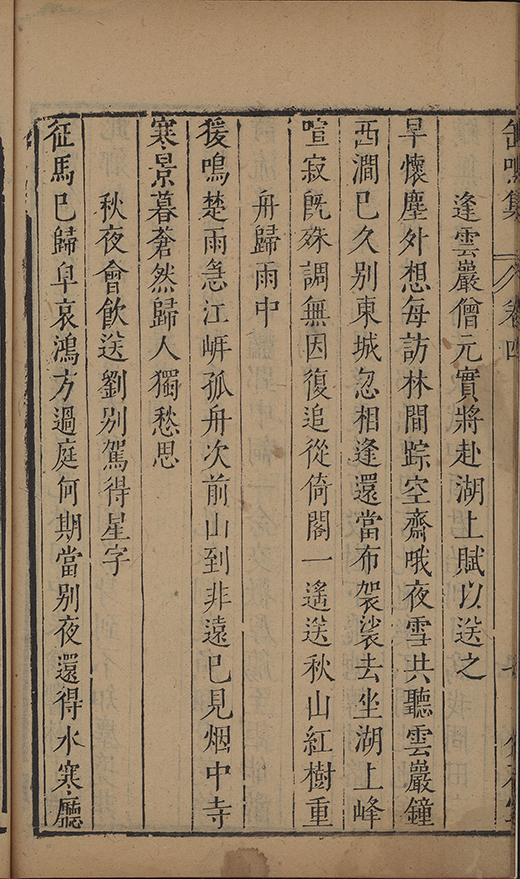 缶鳴集 卷四
逢雲巖僧元實將赴湖上賦以送之
早懷塵外想每訪林間踪空齋哦夜雪共聽雲巖鐘
西澗已久别東城忽相逢還當布袈裟去坐湖上峰
喧寂旣殊調無因復追從倚閣一遙送秋山紅樹重
舟歸雨中
猨鳴楚雨急江㟁孤舟次前山到非遠已見烟中寺
寒景暮蒼然歸人獨愁思
秋夜會飲送劉别駕得星字
征馬已歸皁哀鴻方過庭何期當别夜還得水寒廳